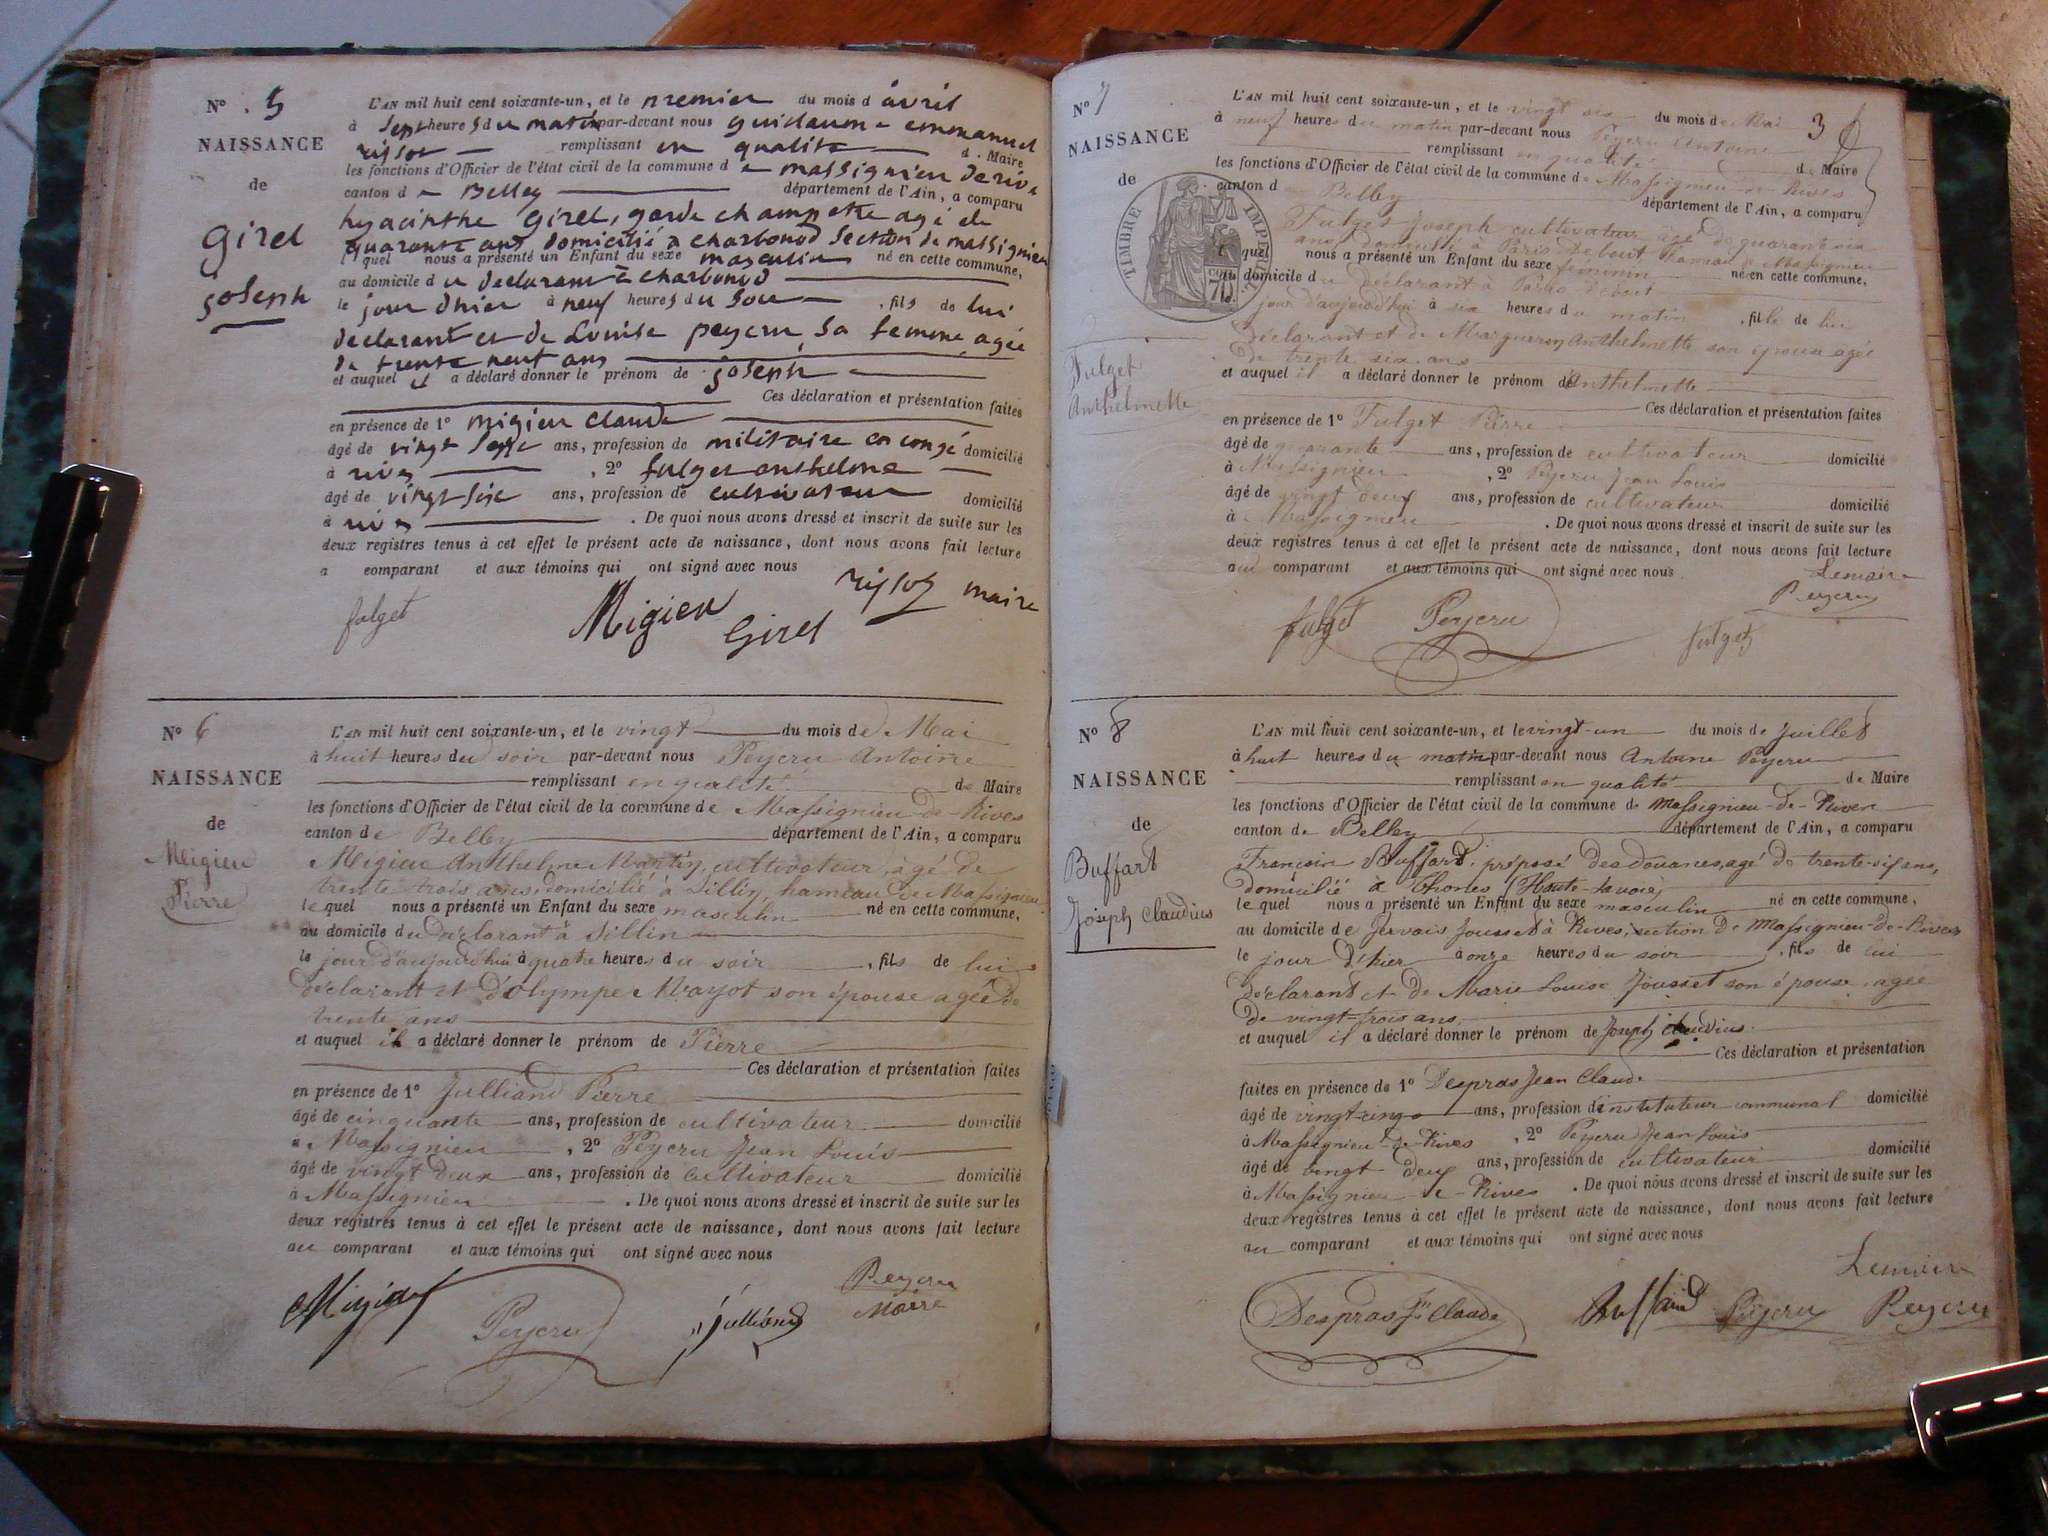 N° 5
NAISSANCE
de
Girel
Joseph
L'AN mil huit cent soixante-un, et le premier du mois d avril
à sept heures du matin par-devant nous guillaume emmanuel
rissot remplissant en qualité d Maire
les fonctions d'Officier de l'état civil de la commune de massignieu de rive
canton de Belley département de l'Ain, a comparu
hyacinthe Girel, garde champetre agé de
quarante ans domicilié a charbonod Section de massignieu
lequel nous a présenté un Enfant du sexe masculin né en cette commune,
au domicile du déclarant à charbonod
le jour dhier à neuf heures du soir , fils de lui
declarant et de Louise peyeru, sa femme, agée
de trente neuf ans
et auquel il a déclaré donner le prénom de joseph
Ces déclaration et présentation faites
en présence de 1° migieu claude
âgé de vingt sept ans, profession de militaire en congé domicilié
à rives , 2° fulget anthelme
âgé de vingt six ans, profession de cultivateur domicilié
à rives . De quoi nous avons dressé et inscrit de suite sur les
deux registres tenus à cet effet le présent acte de naissance, dont nous avons fait lecture
a comparant et aux témoins qui ont signé avec nous
fulget Migieu Girel rissot maire
N° 6
NAISSANCE
de
Migieu
Pierre
L'AN mil huit cent soixante-un, et le vingt du mois de Mai
à huit heures du soir par-devant nous Peyeru Antoine
remplissant en qualité de Maire
les fonctions d'Officier de l'état civil de la commune de Massignieu de Rives
canton de Belley département de l'Ain, a comparu
Migieu Anthelme Martin, cultivateur, âgé de
trente trois ans, domicilié à Sillin, hameau de Massignieu
lequel nous a présenté un Enfant du sexe masculin né en cette commune,
au domicile du déclarant à Sillin
le jour d'aujourd'hui à quatre heures du soir , fils de lui
déclarant et d'olympe Mayot son épouse agée de
trente ans
et auquel il a déclaré donner le prénom de Pierre
Ces déclaration et présentation faites
en présence de 1° Julliand Pierre
âgé de cinquante ans, profession de cultivateur domicilié
à Massignieu , 2° Peyeru Jean Louis
âgé de vingt deux ans, profession de cultivateur domicilié
à Massignieu . De quoi nous avons dressé et inscrit de suite sur les
deux registres tenus à cet effet le présent acte de naissance, dont nous avons fait lecture
au comparant et aux témoins qui ont signé avec nous
Migieu Peyeru julliand Peyeru
Maire
3
N° 7
NAISSANCE
de
TIMBRE IMPERIAL
Fulget
Anthelmette
L'AN mil huit cent soixante-un, et le vingt six du mois de Mai
à neuf heures du matin par-devant nous Peyeru Antoine
remplissant en qualité de Maire
les fonctions d'Officier de l'état civil de la commune de Massignieu de Rives
canton d Belley département de l'Ain, a comparu
Fulget Joseph cultivateur âgé de quarante six
ans, domicilié à hameau de Massignieu
lequel nous a présenté un Enfant du sexe féminin né en cette commune,
au domicile du déclarant à
jour d'aujourd'hui à six heures du matin , fille de lui
déclarant et de Marguerey Anthelmette son épouse agée
de trente six ans
et auquel il a déclaré donner le prénom de Anthelmette
Ces déclaration et présentation faites
en présence de 1° Fulget Pierre
âgé de quarante ans, profession de cultivateur domicilié
à Massignieu , 2° Peyeru Jean Louis
âgé de vingt deux ans, profession de cultivateur domicilié
à Massignieu . De quoi nous avons dressé et inscrit de suite sur les
deux registres tenus à cet effet le présent acte de naissance, dont nous avons fait lecture
au comparant et aux témoins qui ont signé avec nous
Lemaire
Peyeru
fulget Peyeru fulget
N° 8
NAISSANCE
de
Buffart
Joseph Claudius
L'AN mil huit cent soixante-un, et le vingt-un du mois de juillet
à huit heures du matin par-devant nous Antoine Peyeru
remplissant en qualité de Maire
les fonctions d'Officier de l'état civil de la commune de Massignieu-de-Rives
canton de Belley département de l'Ain, a comparu
François Buffard, préposé des douanes, agé de trente-six ans,
domicilié à Thones (Haute-Savoie)
lequel nous a présenté un Enfant du sexe masculin né en cette commune,
au domicile de Gervais Jousset à Rives, section de Massignieu-de-Rives
le jour d'hier à onze heures du soir , fils de lui
déclarant et de Marie Louise Jousset son épouse, agée
de vingt-trois ans,
et auquel il a déclaré donner le prénom de Joseph Claudius.
Ces déclaration et présentation
faites en présence de 1° Despras Jean Claude
âgé de vingt-cinq ans, profession d'instituteur communal domicilié
à Massignieu-de-Rives , 2° Peyeru Jean Louis
âgé de vingt deux ans, profession de cultivateur domicilié
à Massignieu-de-Rives . De quoi nous avons dressé et inscrit de suite sur les
deux registres tenus à cet effet le présent acte de naissance, dont nous avons fait lecture
au comparant et aux témoins qui ont signé avec nous
Lemaire
Despras Jn Claude Buffard Peyeru Peyeru